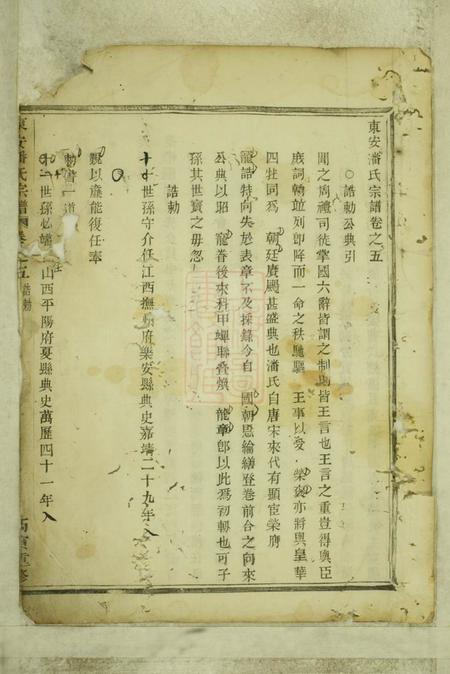 東安潘氏宗譜卷之五
○誥勅公典引
聞之周禮司徒掌國六辭皆謂之制則皆王言也王言之重豈得與臣
庶詞翰竝列即降而一命之秩馳驅 王事以受 榮褒亦將與皇華
四牡同為 朝廷賡颺甚盛典也潘氏自唐宋來代有顯宦榮膺
龍誥特向失於表章不及採錄今自 國朝恩綸繕登卷前合之向來
公典以昭 寵眷後來科甲蟬聯貴顯 龍章即以此為初轉也可子
孫其世寶之毋忽
誥勅
十 世孫守介任江西撫州府樂安縣典史嘉靖二十九年八
以旌能復任奉
勅書一道
十 世孫必 山西平陽府夏縣典史萬歷四十一年八
東安潘氏宗譜 卷之五 誥勅
重修